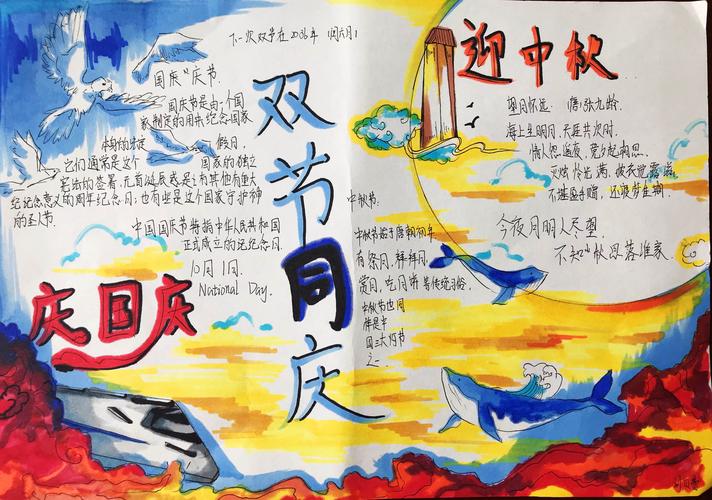 下一次双节在2036年
国庆"庆节
国庆节是由一个国
家制定的用来纪念国家
本身的法定 假日.
它们通常是这个 国家的独立
宪法的签署、元首诞辰或是
纪念意义的周年纪念日;也有些是这个国家守护神
的圣人节.
中国国庆节特指中华人民共和国
正式成立的纪念日
10月1日.
National Day.
庆国庆
双节同庆
中秋节:
中秋节始于唐朝初年
有祭月、拜月
赏月、吃月饼等传统习俗
中秋节也同
样是中
国三大灯节
之一
迎中秋
望月怀远: 唐:张九龄.
海上生明月,天涯共此时.
情人怨遥夜,竟夕起相思.
灭烛怜光满,披衣觉露滋
不堪盈手赠,还寝梦佳期.
今夜月明人尽望.
不知秋思落谁家.